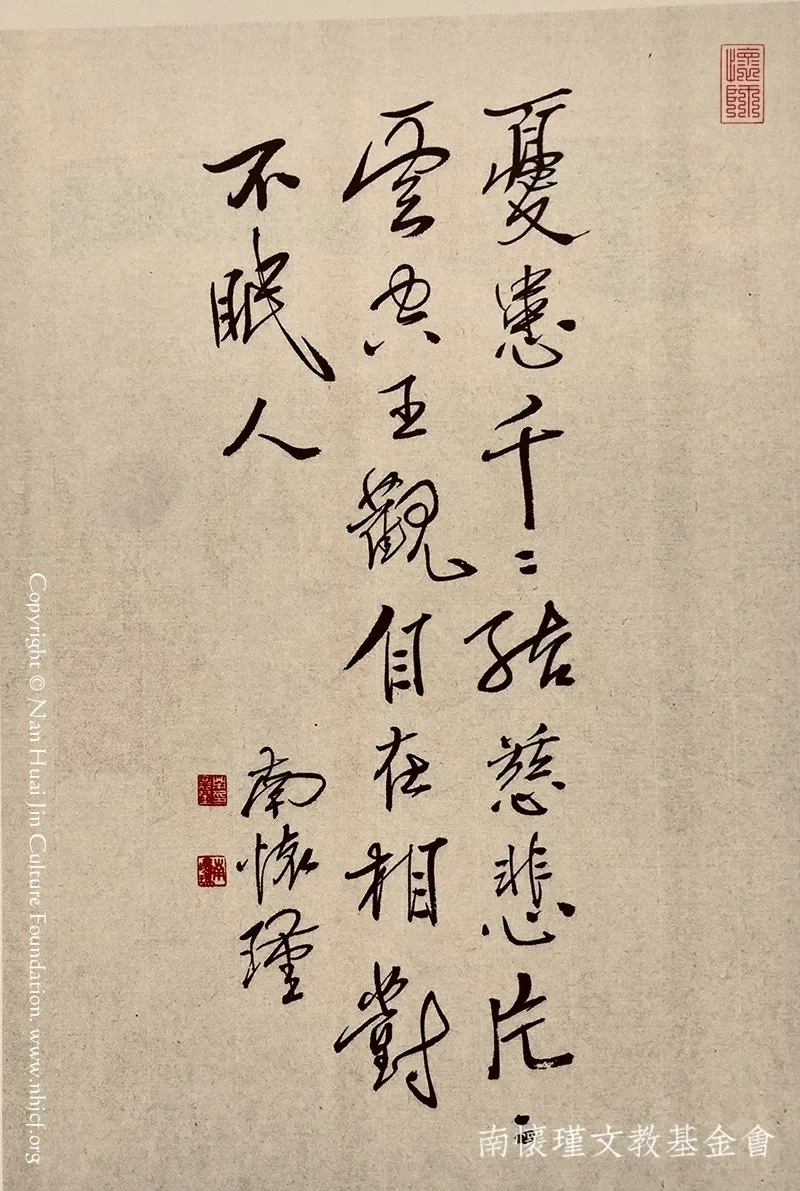 懷師
憂患千〻結慈悲片〻
雲空王觀自在相對
不眠人
南懷瑾
Copyright © Nan Huai Jin Culture Foundation. www.nhjcf.org
南懷瑾文教基金會